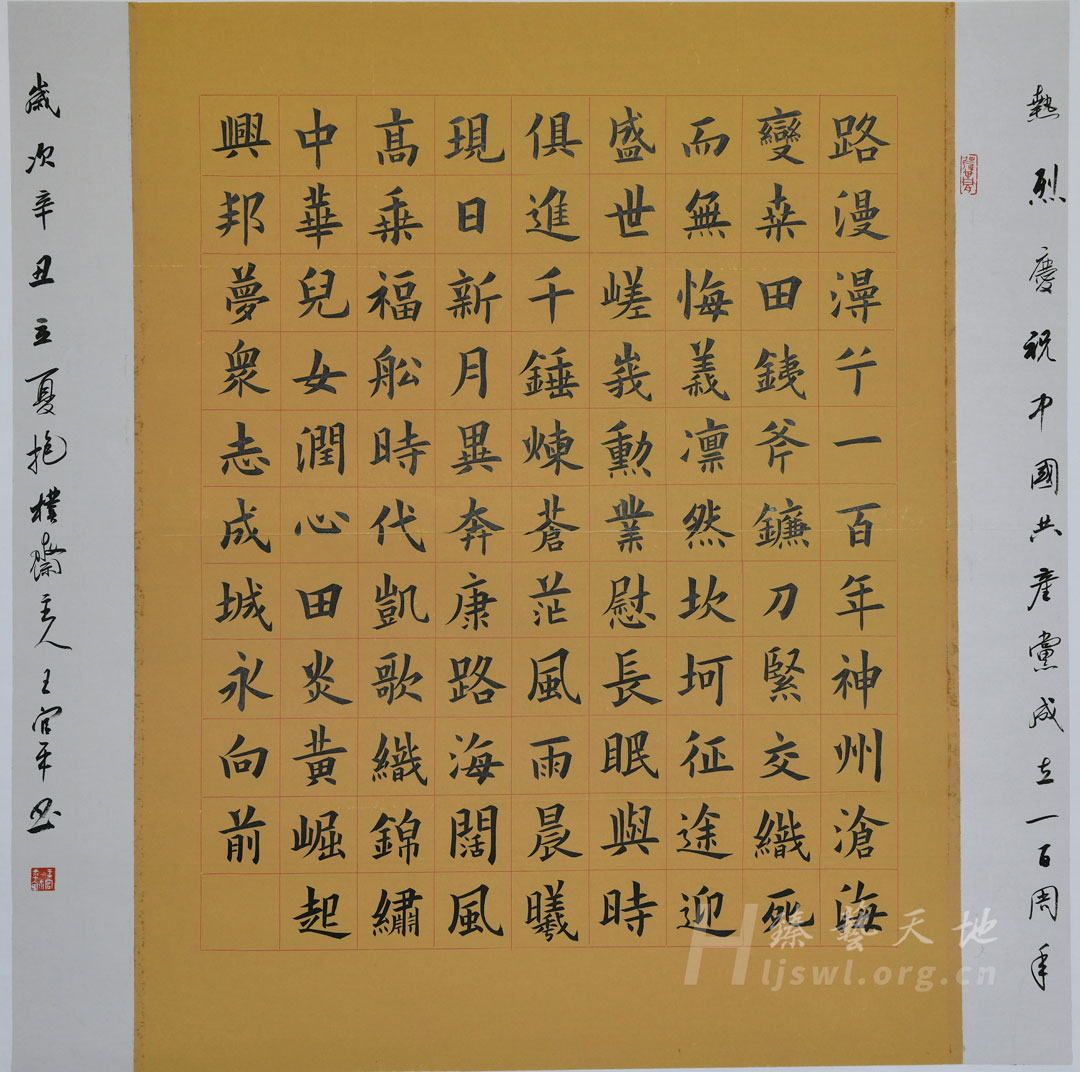 熱烈慶祝中國共產黨成立一百周年
路漫漫兮一百年神州滄海
變桒田銕斧鐮刀緊交織死
而無悔義凛然坎坷征途迎
盛世嵯峩勳業慰長眠與時
俱進千錘煉蒼茫風雨晨曦
現日新月異奔康路海闊風
髙乗福舩時代凱歌織錦繡
中華兒女潤心田炎黃崛起
興邦夢衆志成城永向前
歲次辛丑立夏抱樸齋主人王官平書
臻藝天地
Hljswl.org.cn